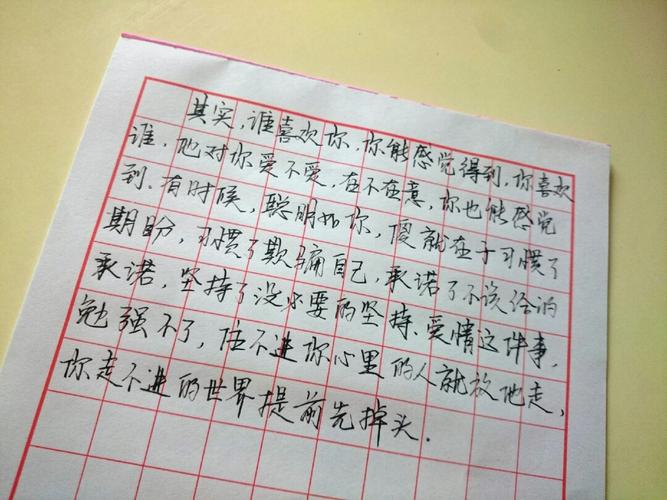 其实,谁喜欢你,你能感觉得到,你喜欢
谁,他对你爱不爱,在不在意,你也能感觉
到.有时候,聪明如你,傻就在于习惯了
期盼,习惯了欺骗自己,承诺了不该给的
承诺,坚持了没必要的坚持.爱情这件事,
勉强不了,住不进你心里的人就放他走,
你走不进的世界提前先掉头.